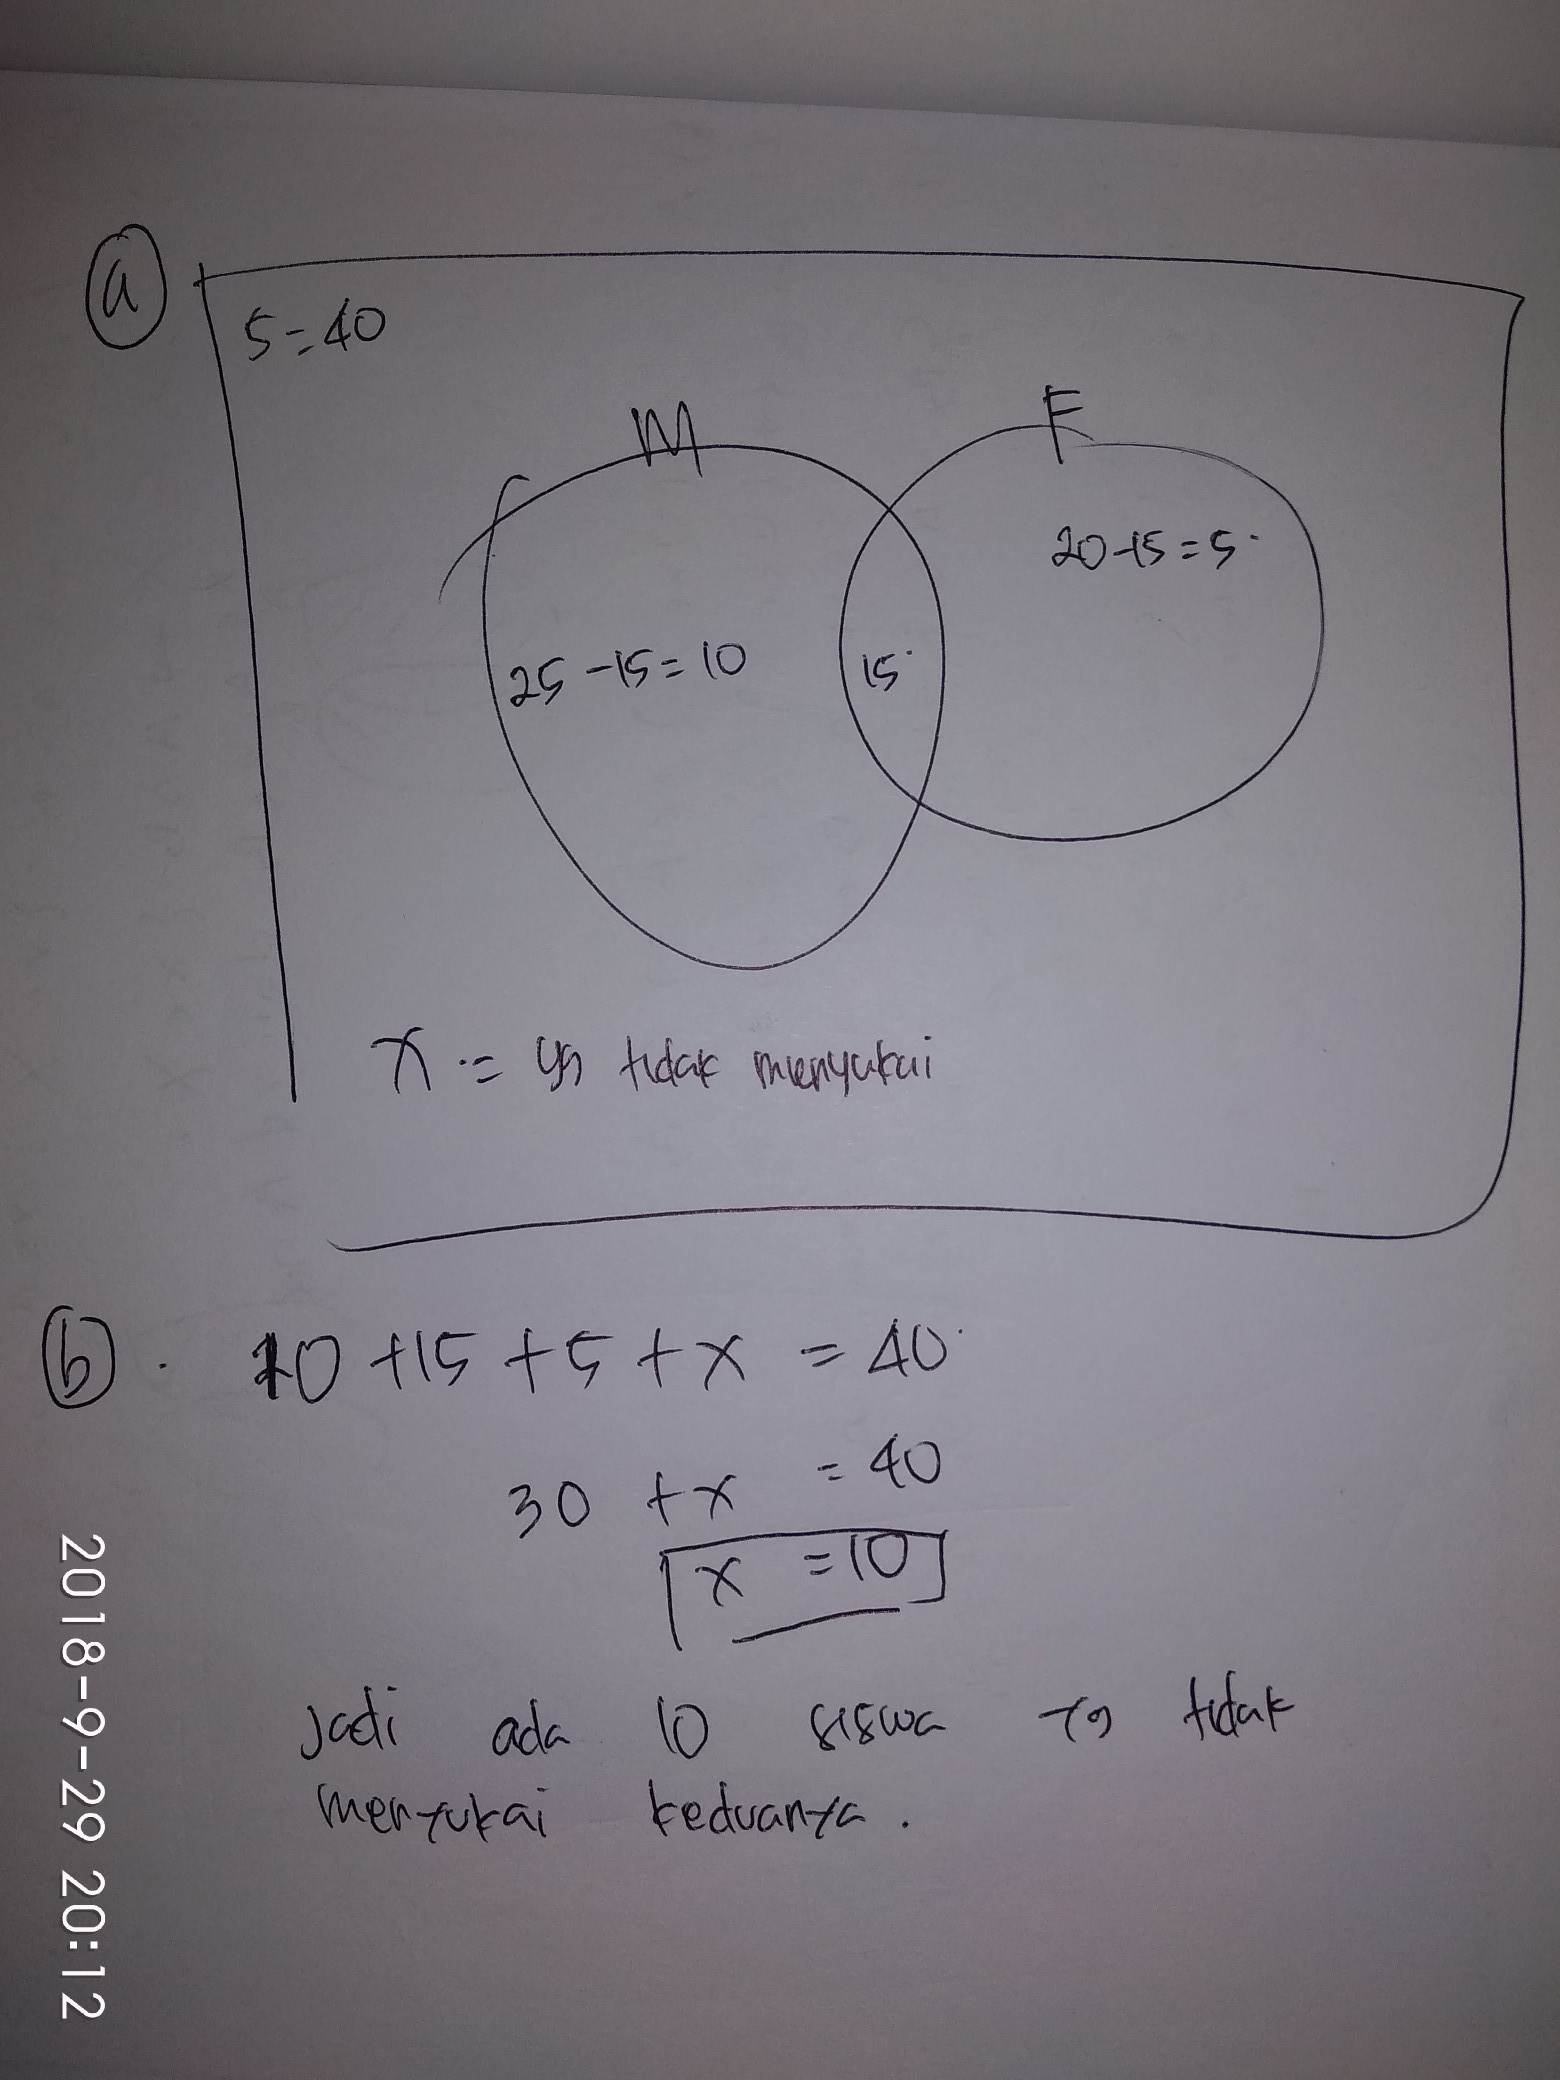 a
S = 40
M
F
20-15 = 5
25 - 15 = 10
15
x = yg tidak menyukai
b. 10 + 15 + 5 + x = 40
30 + x = 40
x = 10
Jadi ada 10 siswa yg tidak
menyukai keduanya.
2018-9-29 20:12